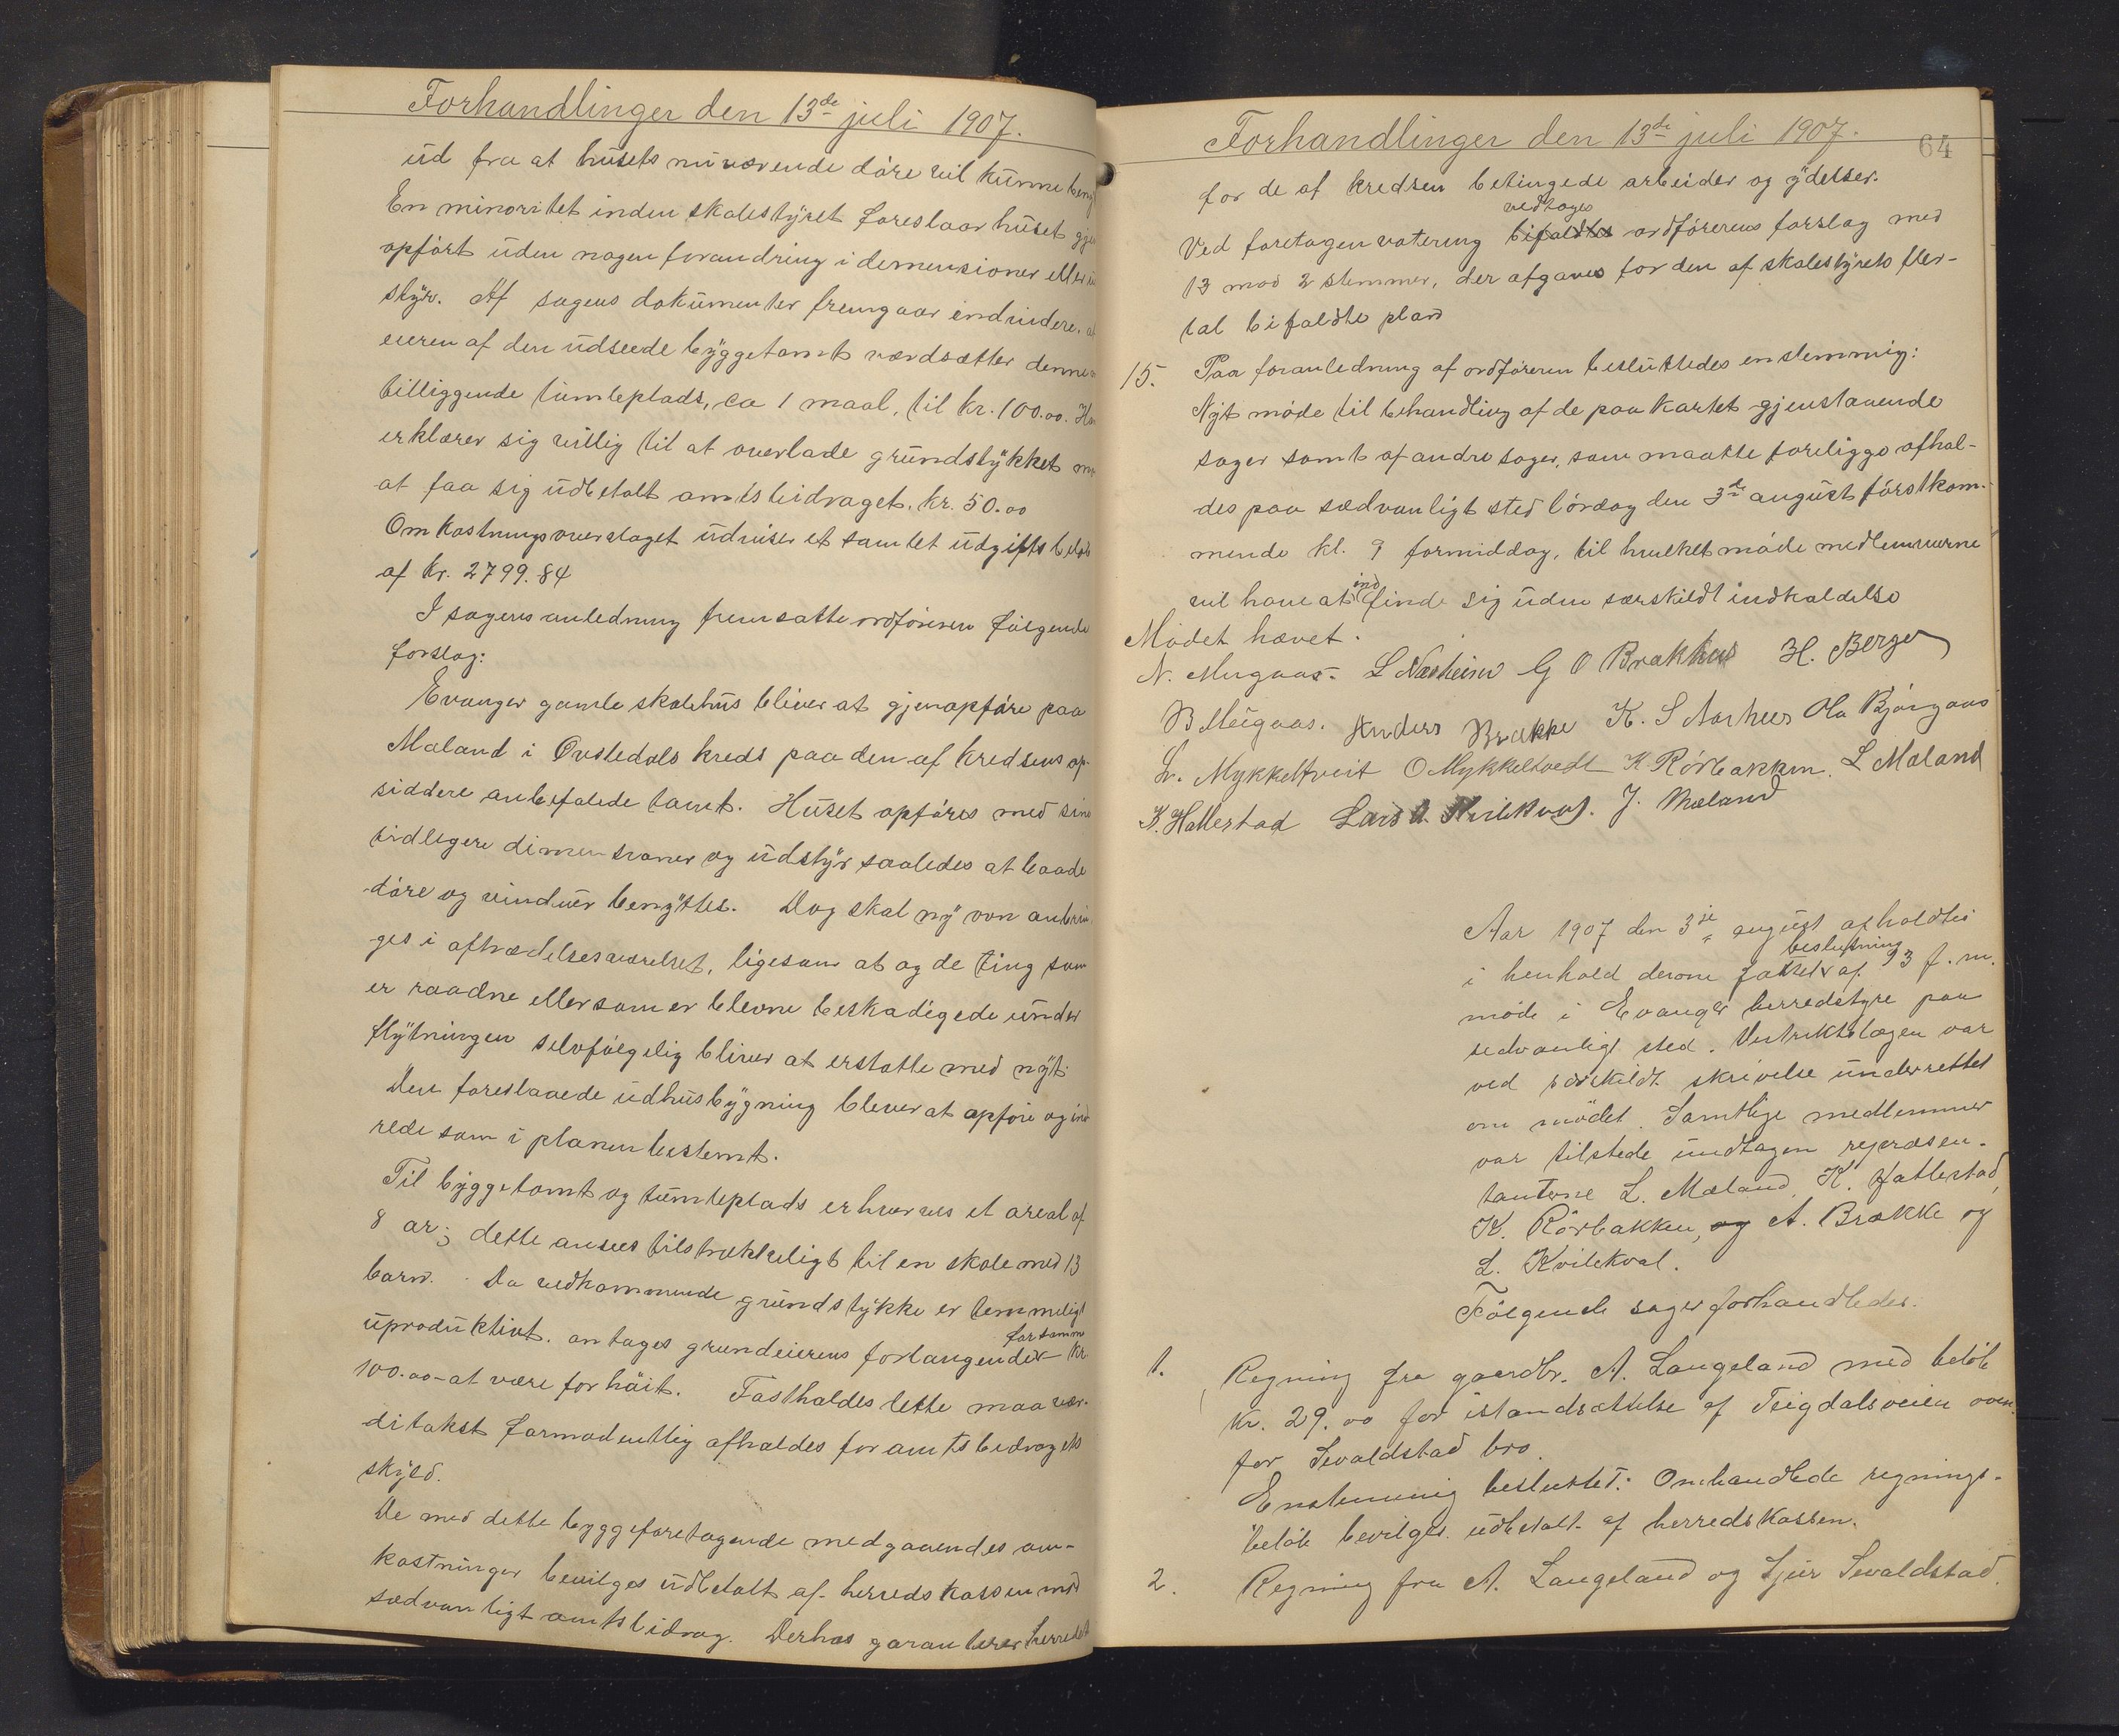 Forhandlinger den 13de juli 1907.
ud fra at husets nuværende døre vil kunne beny
En minoritet inden skolestyret foreslaar huset gjen
opført uden nogen forandring i demensioner eller
styr. Af sagens dokumenter fremgaar endvidere, at
eieren af den udseede byggetomt værdsætter denne
tilliggende tumleplads, ca 1 maal, til kr. 100.00. Han
erklærer sig villig til at overlade grundstykket
at faa sig udbetalt amtsbidraget, kr. 50.00
Omkostningsoverslaget udviser et samlet udgiftsbeløb
af kr. 2799.84
I sagens anledning fremsatte ordføreren følgende
forslag:
Evanger gamle skolehus bliver at gjenopføre paa
Mæland i Øvstedals kreds paa den af kredsens op-
siddere anbefalede tomt. Huset opføres med sine
tidligere dimensioner og udstyr saaledes at baade
døre og vinduer benyttes. Dog skal ny ovn anbrin
ges i aftrædelsesværelset, ligesom at og de ting som
er raadne eller som er blevne beskadigede under
flytningen selvfølgelig bliver at erstatte med nyt.
Den foreslaaede udhusbygning bliver at opføre og ind
rede som i planen bestemt.
Til byggetomt og tumleplads erhverves et areal af
8 ar; dette ansees tilstrækkeligt til en skole med 13
barn. Da vedkommende grundstykke er temmeligt
uproduktivt, antages grundeierens forlangende for samme kr.
100.00 at være for høit. Fastholdes dette maa vær-
ditakst formodentlig afholdes for amtsbidragets
skyld.
De med dette byggeforetagende medgaaendes om-
kostninger bevilges udbetalt af herredskassen med
sædvanligt amtsbidrag. Derhos garanterer herredet
Forhandlinger den 13de juli 1907.
64
for de af kredsen betingede arbeider og ydelser.
vedtoges
Ved foretagen votering bifaldtes ordførerens forslag med
13 mod 2 stemmer, der afgaves for den af skolestyrets fler-
tal bifaldte plan
15. Paa foranledning af ordføreren besluttedes enstemmig:
Nyt møde til behandling af de paa kartet gjenstaaende
sager samt af andre sager, som maatte foreligge afhol-
des paa sædvanligt sted lørdag den 3de august førstkom-
mende kl. 9 formiddag, til hvilket møde medlemmerne
vil have at indfinde sig uden særskildt indkaldelse
Mødet hævet.
N. Mugaas. L Næsheim G O Brakhus H. Berger
B Mugaas. Anders Brække K. S Aarhus Ola Bjørgaas
L. Mykkeltveit O Mykkeltvedt K Rørbakken. L Mæland
K. Hatlestad Lars A. Kvilekval. J. Mæland
Aar 1907 den 3je august afholdtes
i henhold derom fattet beslutning af 93 f.m.
møde i Evanger herredstyre paa
sedvanligt sted. Distriktslægen var
ved særskildt skrivelse underrettet
om mødet. Samtlige medlemmer
var tilstede undtagen repræsen-
tantene L. Mæland, K. Hatlestad,
K. Rørbakken, og A. Brække og
L. Kvilekval.
Følgende sager forhandledes.
1. Regning fra gaardbr. A. Langeland med beløb
kr. 29.00 for istandsættelse af Teigdalsveien oven-
for Sevaldstad bro.
Enstemmig besluttet: Omhandlede regnings-
beløb bevilges udbetalt af herredskassen.
2. Regning fra A. Langeland og Sjur Sevaldstad